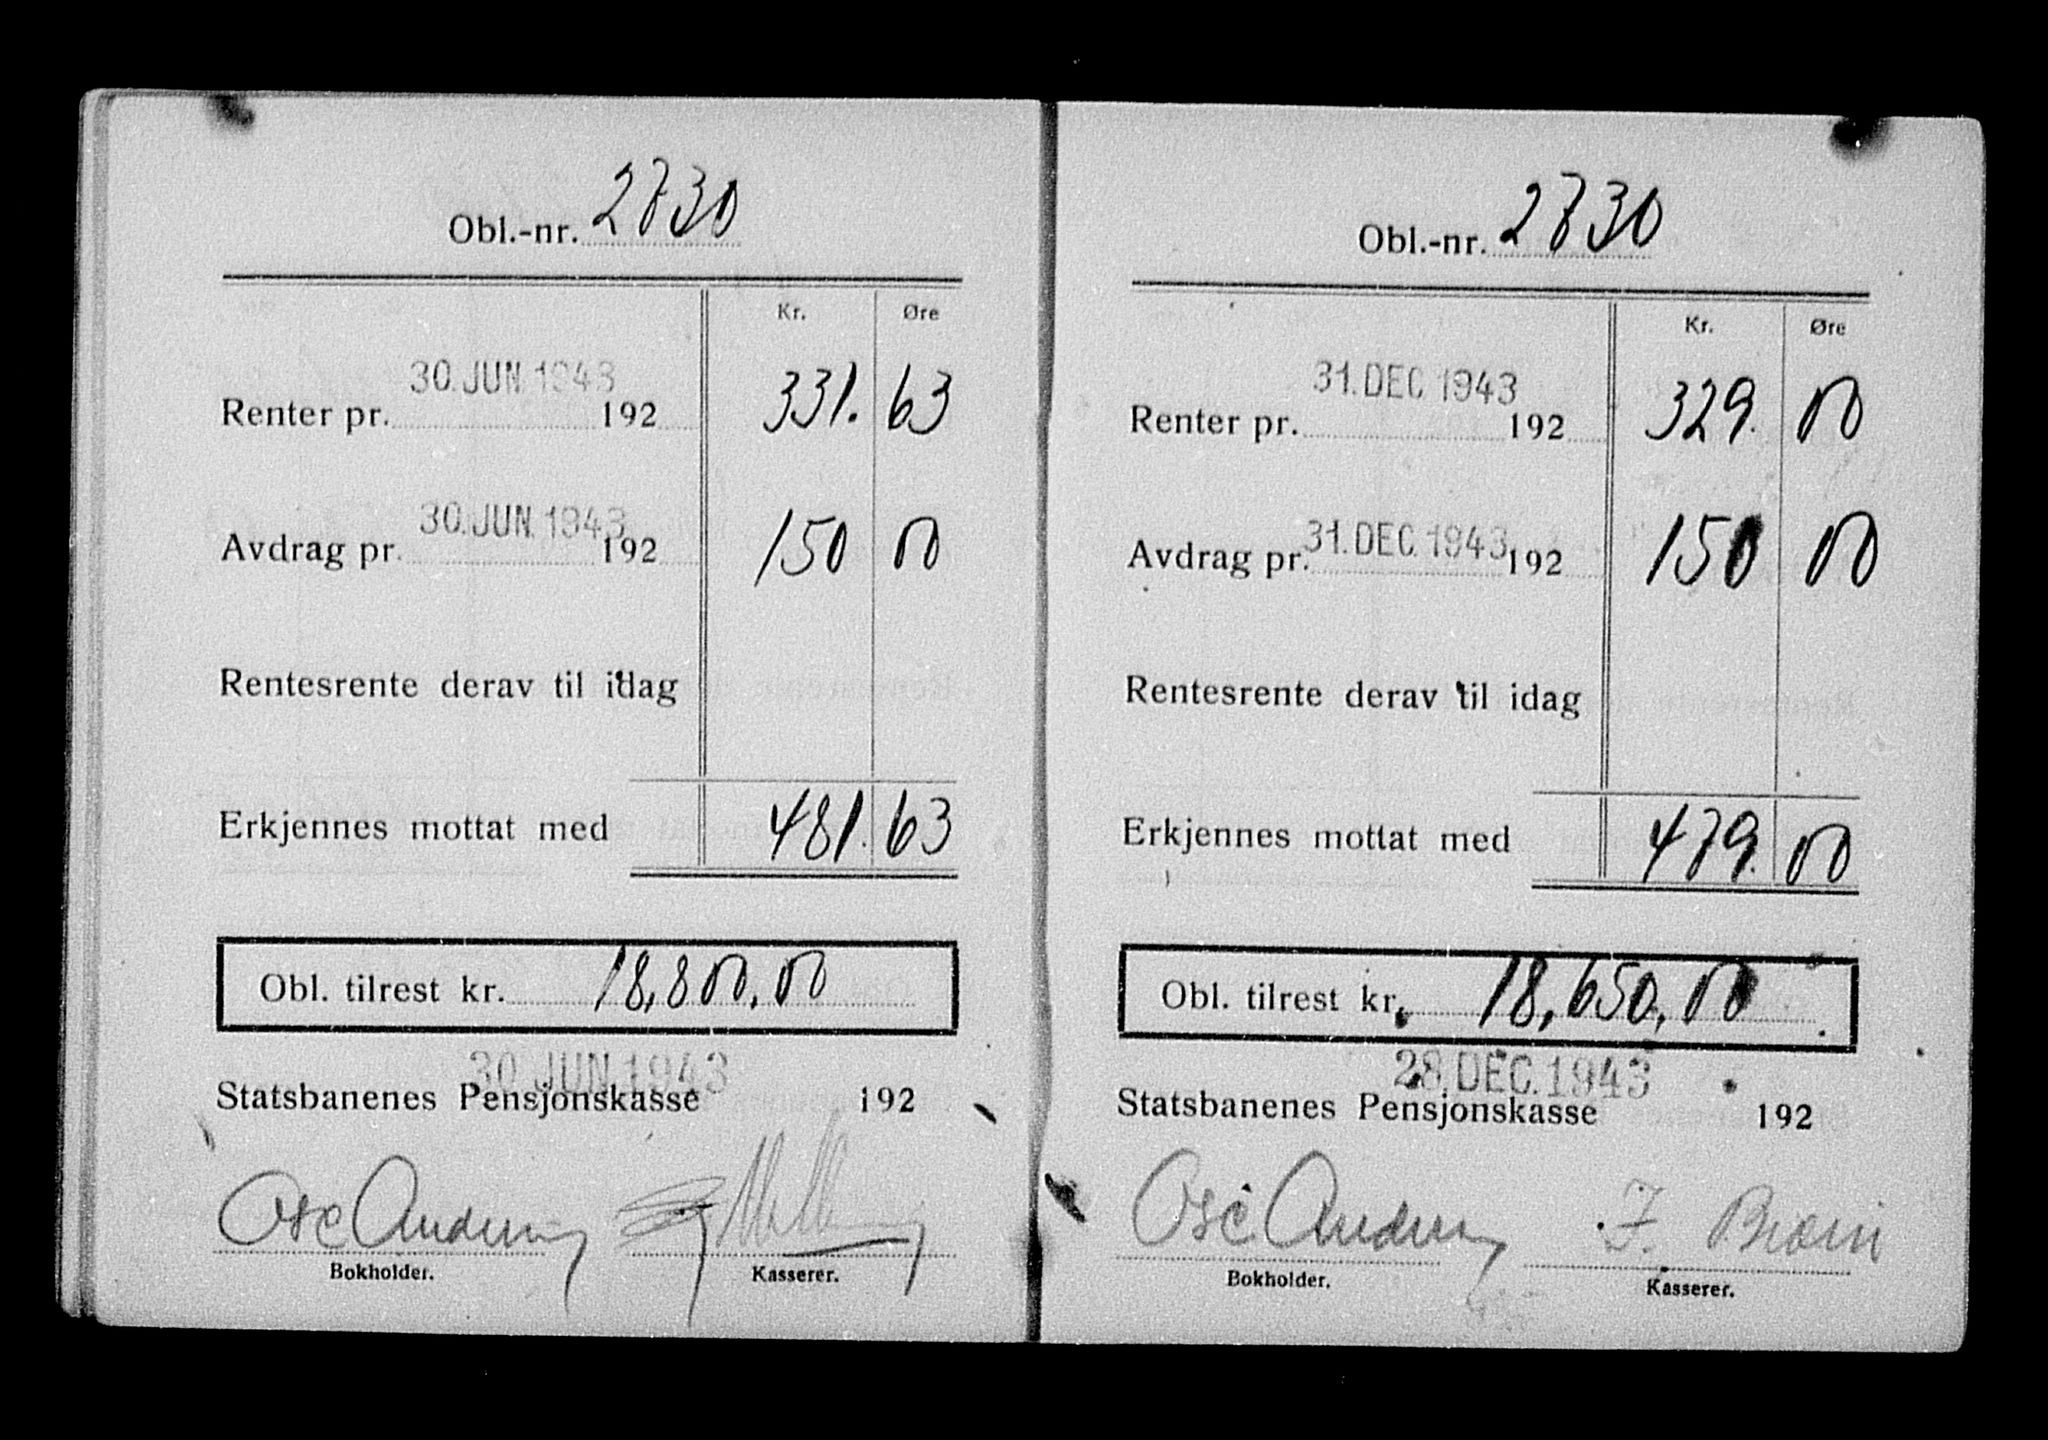 Obl.-nr. 2830
Kr. Øre
30. JUN. 1943
Renter pr. 192 331. 63
30. JUN. 1943
Avdrag pr. 192 150 00
Rentesrente derav til idag
Erkjennes mottat med 481. 63
Obl. tilrest kr. 18,800,00
30 JUN 1943
Statsbanenes Pensjonskasse 192
Osc Andersen
Bokholder. Kasserer.
Obl.-nr. 2830
Kr. Øre
31. DEC 1943
Renter pr. 192 329. 00
31. DEC. 1943
Avdrag pr. 192 150 00
Rentesrente derav til idag
Erkjennes mottat med 479. 00
Obl. tilrest kr. 18,650,00
28. DEC. 1943
Statsbanenes Pensjonskasse 192
Osc. Andersen F.
Bokholder. Kasserer.